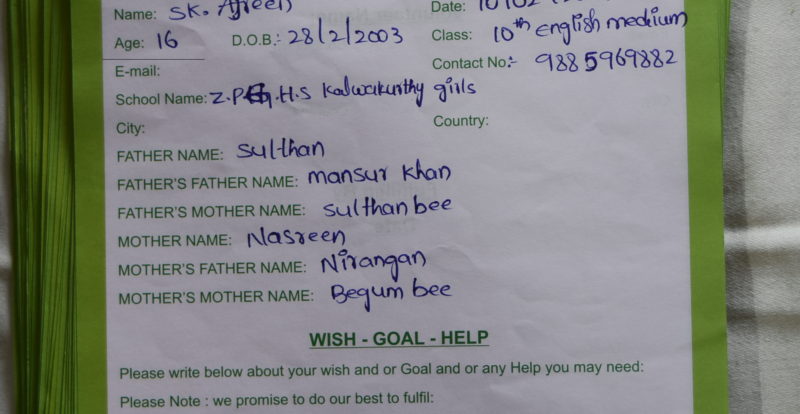 Name: SK. Afreen
Date: 10/02/
Age: 16 D.O.B.: 28/2/2003 Class: 10th english medium
E-mail: Contact No:- 9885969882
School Name: Z.P.G.H.S Kalwakurthy girls
City: Country:
FATHER NAME: Sulthan
FATHER'S FATHER NAME: mansur khan
FATHER'S MOTHER NAME: Sulthan bee
MOTHER NAME: Nasreen
MOTHER'S FATHER NAME: Nirangan
MOTHER'S MOTHER NAME: Begum bee
WISH - GOAL - HELP
Please write below about your wish and or Goal and or any Help you may need:
Please Note : we promise to do our best to fulfil: